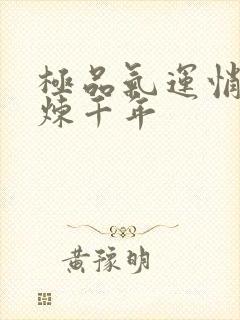 極品氣運悄
煉千年
黃豫明